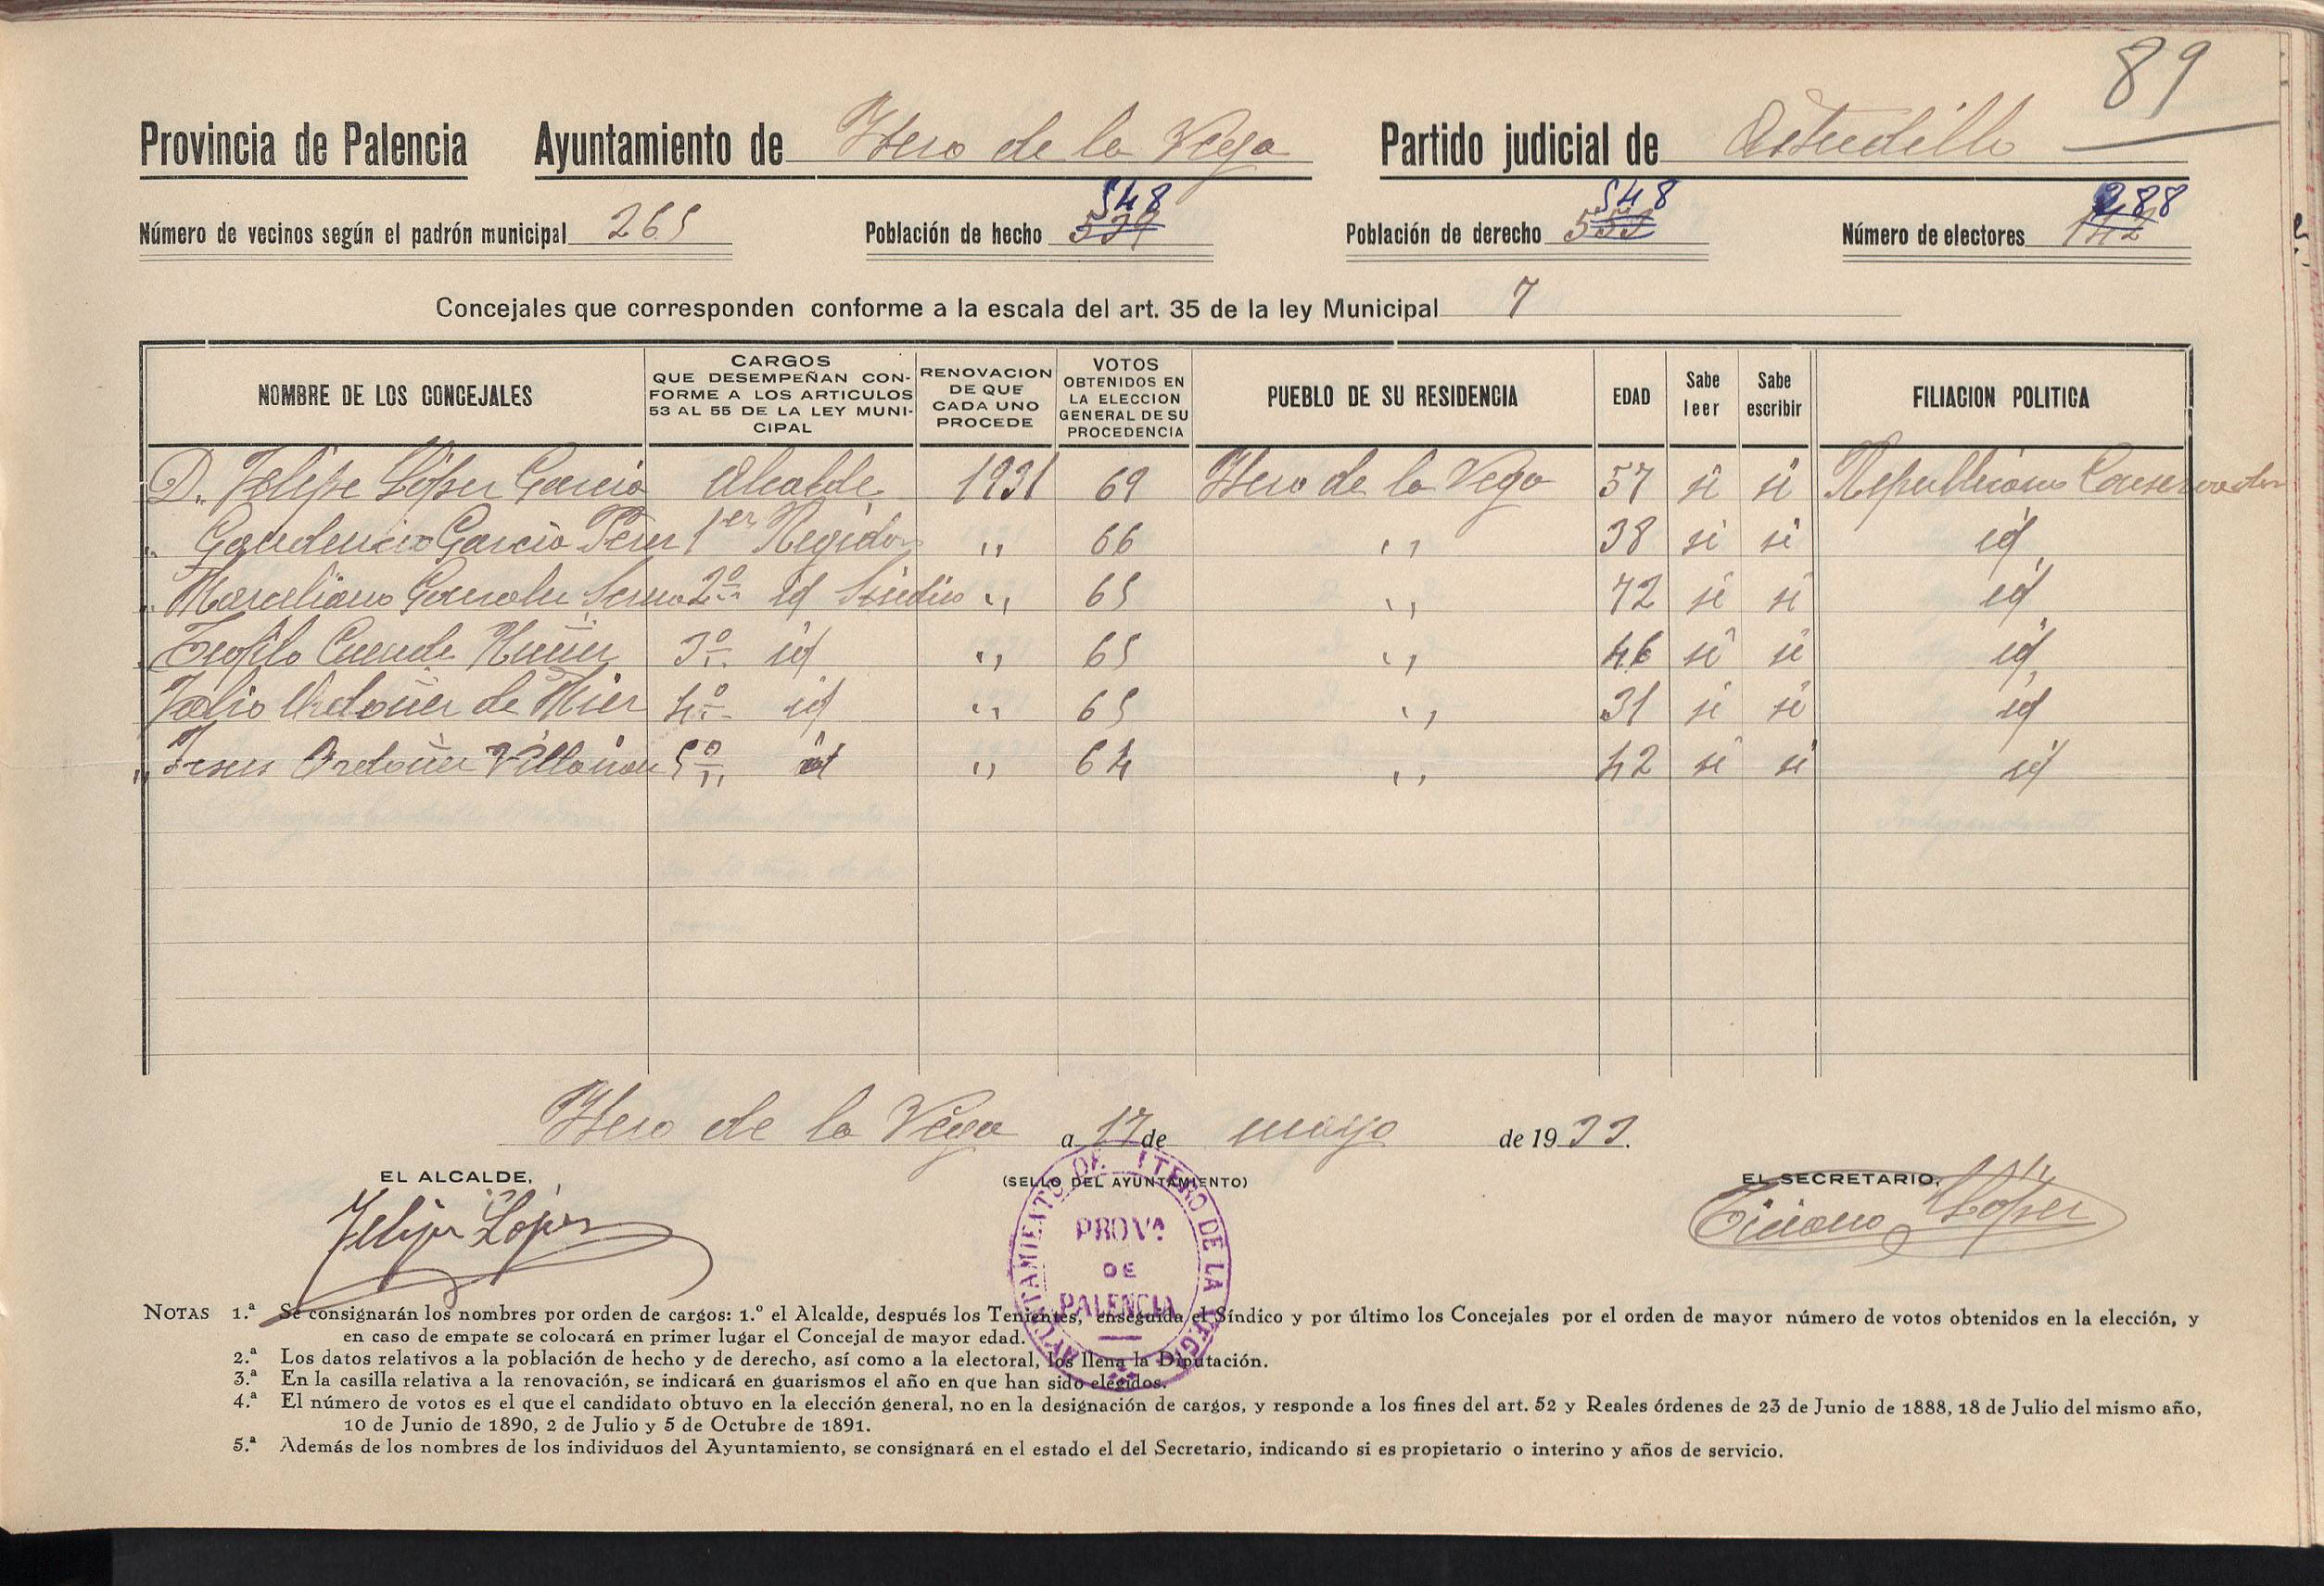 89
Provincia de Palencia Ayuntamiento de Itero de la Vega Partido judicial de Astudillo
548 548 288
Número de vecinos según el padrón municipal 265 Población de hecho 539 Población de derecho 553 Número de electores 142
Concejales que corresponden conforme a la escala del art. 35 de la ley Municipal 7
NOMBRE DE LOS CONCEJALES
CARGOS
QUE DESEMPEÑAN CON-
FORME A LOS ARTICULOS
53 AL 55 DE LA LEY MUNI-
CIPAL
RENOVACION
DE QUE
CADA UNO
PROCEDE
VOTOS
OBTENIDOS EN
LA ELECCION
GENERAL DE SU
PROCEDENCIA
PUEBLO DE SU RESIDENCIA
EDAD
Sabe
leer
Sabe
escribir
FILIACION POLITICA
D. Felipe López García Alcalde 1931 69 Itero de la Vega 57 si si Republicano Conservador
" Gaudencio García Pérez 1er Regidor " 66 " 38 si si id
" Marceliano González 2º id Sindico " 65 " 72 si si id
" Teofilo Cuende 3º id " 65 " 46 si si id
Julio Ordóñez de Mier 4º id " 65 " 31 si si id
" Jesus Ordóñez 5º id " 64 " 42 si si id
Itero de la Vega a 17 de mayo de 1933.
EL ALCALDE, (SELLO DEL AYUNTAMIENTO) EL SECRETARIO,
Felipe López
Ticiano López
AYUNTAMIENTO DE ITERO DE LA VEGA
PROVª
DE
PALENCIA
NOTAS 1.ª Se consignarán los nombres por orden de cargos: 1.º el Alcalde, después los Tenientes, enseguida el Síndico y por último los Concejales por el orden de mayor número de votos obtenidos en la elección, y
en caso de empate se colocará en primer lugar el Concejal de mayor edad.
2.ª Los datos relativos a la población de hecho y de derecho, así como a la electoral, los llena la Diputación.
3.ª En la casilla relativa a la renovación, se indicará en guarismos el año en que han sido elegidos.
4.ª El número de votos es el que el candidato obtuvo en la elección general, no en la designación de cargos, y responde a los fines del art. 52 y Reales órdenes de 23 de Junio de 1888, 18 de Julio del mismo año,
10 de Junio de 1890, 2 de Julio y 5 de Octubre de 1891.
5.ª Además de los nombres de los individuos del Ayuntamiento, se consignará en el estado el del Secretario, indicando si es propietario o interino y años de servicio.